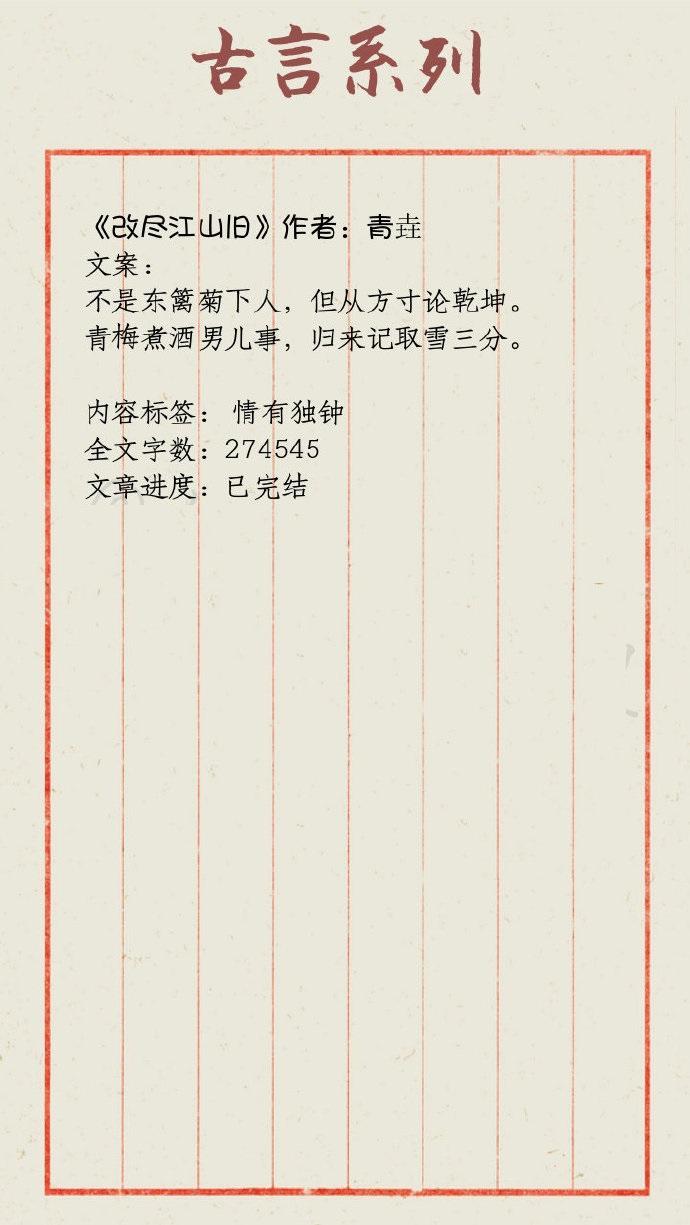 古言系列
《改尽江山旧》作者：青垚
文案：
不是东篱菊下人，但从方寸论乾坤。
青梅煮酒男儿事，归来记取雪三分。
内容标签： 情有独钟
全文字数：274545
文章进度：已完结